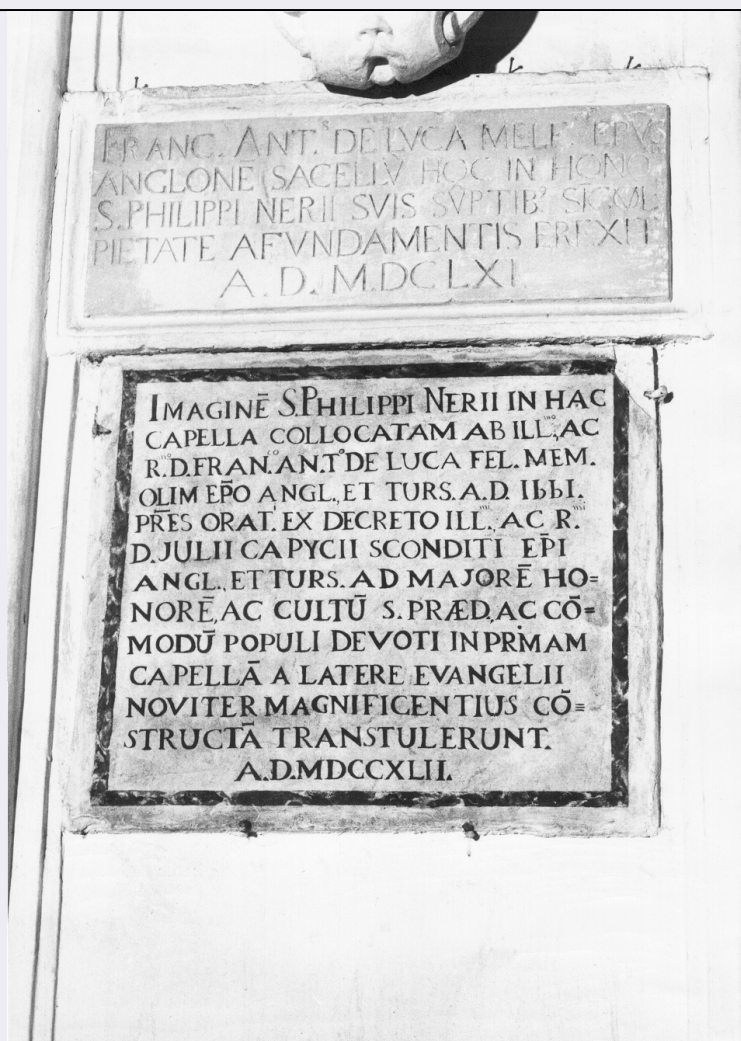 FRANC. ANT.ˢ DE LVCA MELF. EPVS
ANGLONĒ SACELLV̄ HOC IN HONO
S. PHILIPPI NERII SVIS SVPTIB'
PIETATE AFVNDAMENTIS EREXIT
A.D. MDCLXI
IMAGINĒ S.PHILIPPI NERII IN HAC
CAPELLA COLLOCATAM AB ILL.ᵐᵒ, AC
R.ᵐᵒ D.FRAN.ᶜᵒ AN.Tᵒ DE LUCA FEL. MEM.
OLIM EP̄O ANGL., ET TURS. A.D. 1661.
PR̄ES ORAT. EX DECRETO ILL.ᵐⁱ, AC R.ᵐⁱ
D. JULII CAPYCII SCONDITI EP̄I
ANGL., ET TURS. AD MAJORĒ HO=
NORĒ, AC CULTŪ S. PRÆD., AC CŌ=
MODŪ POPULI DEVOTI IN PRIMAM
CAPELLĀ A LATERE EVANGELII
NOVITER MAGNIFICENTIUS CŌ=
STRUCTĀ TRANSTULERUNT.
A.D. MDCCXLII.